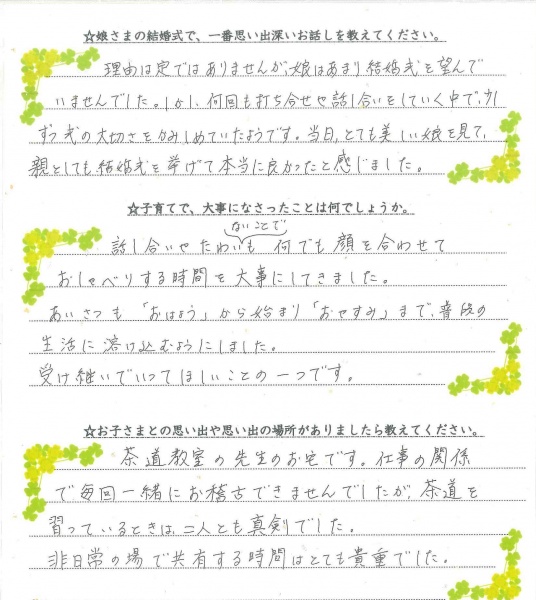 ☆娘さまの結婚式で、一番思い出深いお話しを教えてください。
理由は定ではありませんが、娘はあまり結婚式を望んで
いませんでした。しかし、何回も打ち合せや話し合いをしていく中で、少し
ずつ式の大切さをかみしめていたようです。当日、とても美しい娘を見て、
親としても結婚式を挙げて本当に良かったと感じました。
☆子育てで、大事になさったことは何でしょうか。
ないことで
話し合いやたわいも 何でも顔を合わせて
おしゃべりする時間を大事にしてきました。
あいさつも「おはよう」から始まり「おやすみ」まで、普段の
生活に溶け込むようにしました。
受け継いでいってほしいことの一つです。
☆お子さまとの思い出や思い出の場所がありましたら教えてください。
茶道教室の先生のお宅です。仕事の関係
で毎回一緒にお稽古できませんでしたが、茶道を
習っているときは、二人とも真剣でした。
非日常の場で共有する時間はとても貴重でした。